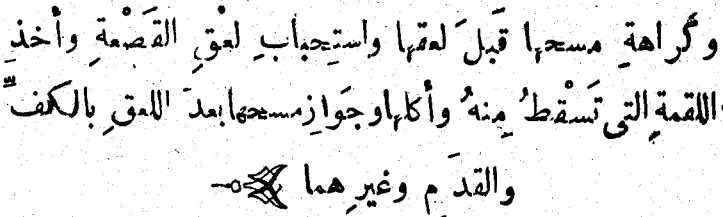 وكَراهةِ مسحها قَبلَ لعقها واستِحبابِ لعْقِ القَصْعةِ وأخذِ
اللقمةِ التي تَسْقطُ مِنهُ وأكلها وجَوازِ مسحها بعدَ اللعقِ بالكفِّ
والقدَمِ وغيرِهما